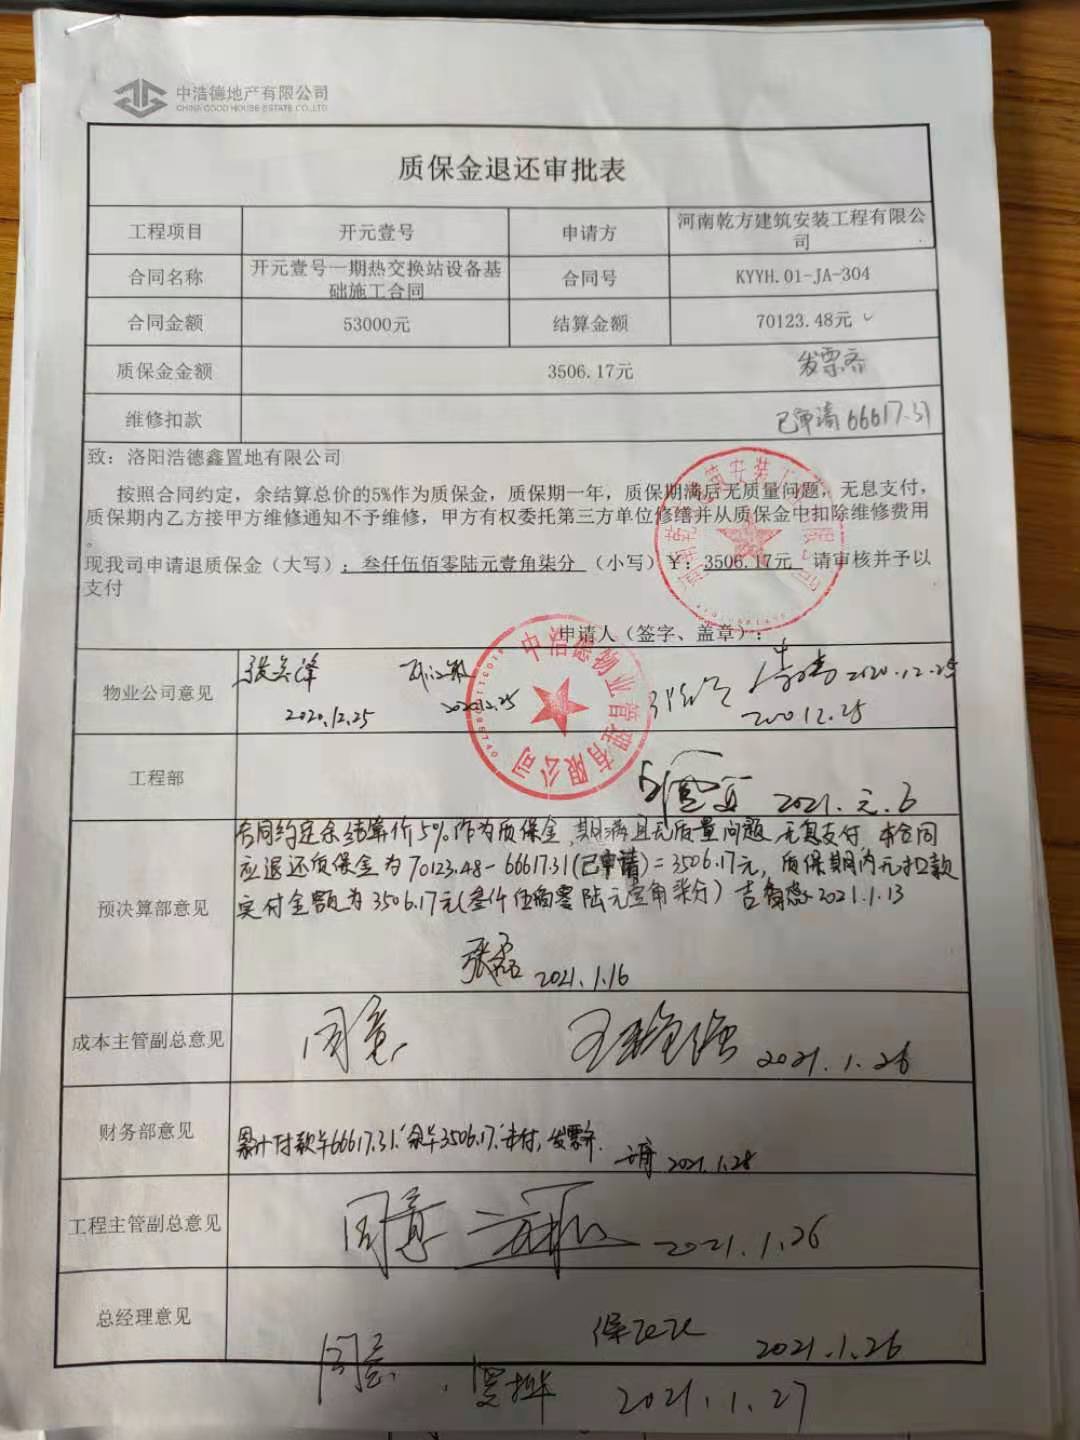 中浩德地产有限公司
CHINA GOOD HOUSE ESTATE CO.,LTD
质保金退还审批表
工程项目 开元壹号 申请方 河南乾方建筑安装工程有限公司
合同名称 开元壹号一期热交换站设备基础施工合同 合同号 KYYH.01-JA-304
合同金额 53000元 结算金额 70123.48元
质保金金额 3506.17元 发票齐
维修扣款 已申请66617.31
致：洛阳浩德鑫置地有限公司
按照合同约定，余结算总价的5%作为质保金，质保期一年，质保期满后无质量问题，无息支付，
质保期内乙方接甲方维修通知不予维修，甲方有权委托第三方单位修缮并从质保金中扣除维修费用
。
现我司申请退质保金（大写）：叁仟伍佰零陆元壹角柒分（小写）￥：3506.17元 请审核并予以
支付
申请人（签字、盖章）：
中浩德物业管理有限公司
物业公司意见
2020.12.25 2020.12.25 2020.12.25
工程部 2021.元.6
合同约定余结算价5%作为质保金，期满且无质量问题，无息支付，本合同
应退还质保金为70123.48-66617.31(已申请)=3506.17元，质保期内无扣款
预决算部意见 实付金额为3506.17元(叁仟伍佰零陆元壹角柒分) 2021.1.13
张 2021.1.16
成本主管副总意见 同意 2021.1.26
财务部意见 累计付款¥66617.31.余¥3506.17.未付,发票齐. 2021.1.28
工程主管副总意见 同意 2021.1.26
总经理意见 2021.1.26
同意 2021.1.27